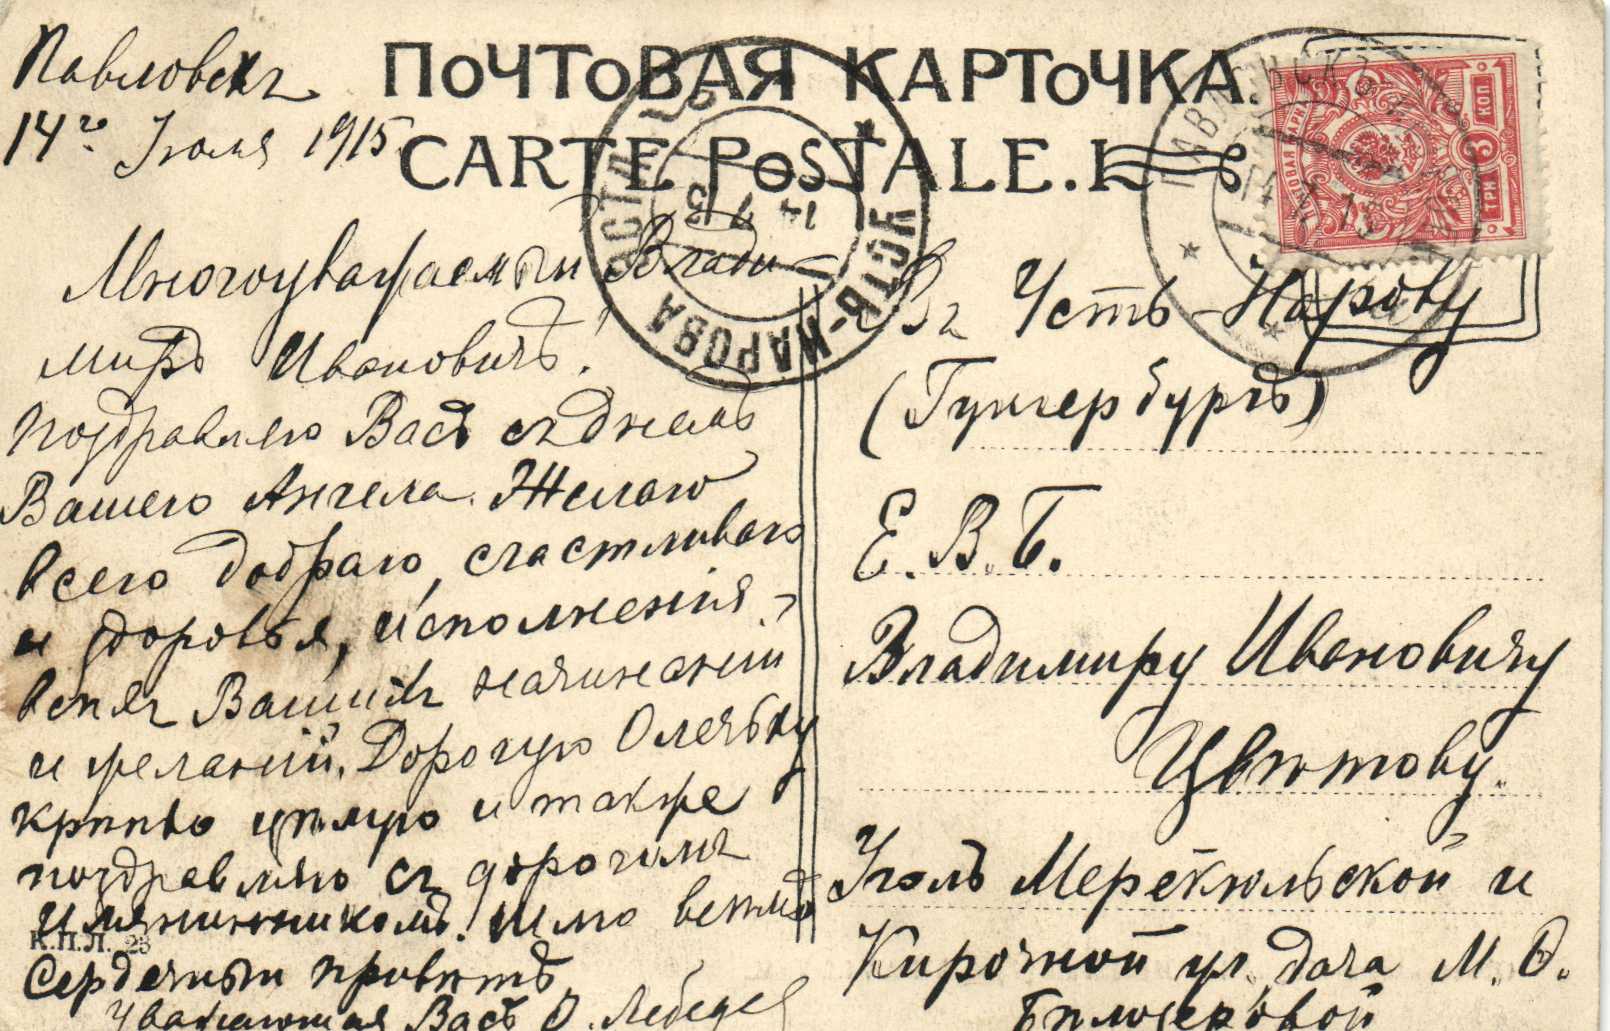 ПОЧТОВАЯ КАРТОЧКА.
CARTE POSTALE.
Павловскъ
14го Іюля 1915
Многоуважаемый Влади-
миръ Ивановичъ!
Поздравляю Васъ съ днемъ
Вашего Ангела. Желаю
всего добраго, счастливаго
и здоровья, исполненія
всѣхъ Вашихъ начинаній
и желаній. Дорогую Олечьку
крѣпко цѣлую и также
поздравляю съ дорогимъ
имянинникомъ. Шлю всѣмъ
Сердечный привѣтъ.
Уважающая Васъ О. Лебедев
К.П.Л. 23
Въ Усть-Нарову
(Гунгербургъ)
Е. В. Б.
Владимиру Ивановичу
Цвѣтову.
Уголъ Мерекюльской и
Кирочной ул. дача М. О.
Бѣлозеровой
УСТЬ-НАРОВА ЭСТЛ.
14 7 15
ПАВЛОВСКЪ
14 7 15
ПОЧТОВАЯ МАРКА
3 КОП
ТРИ